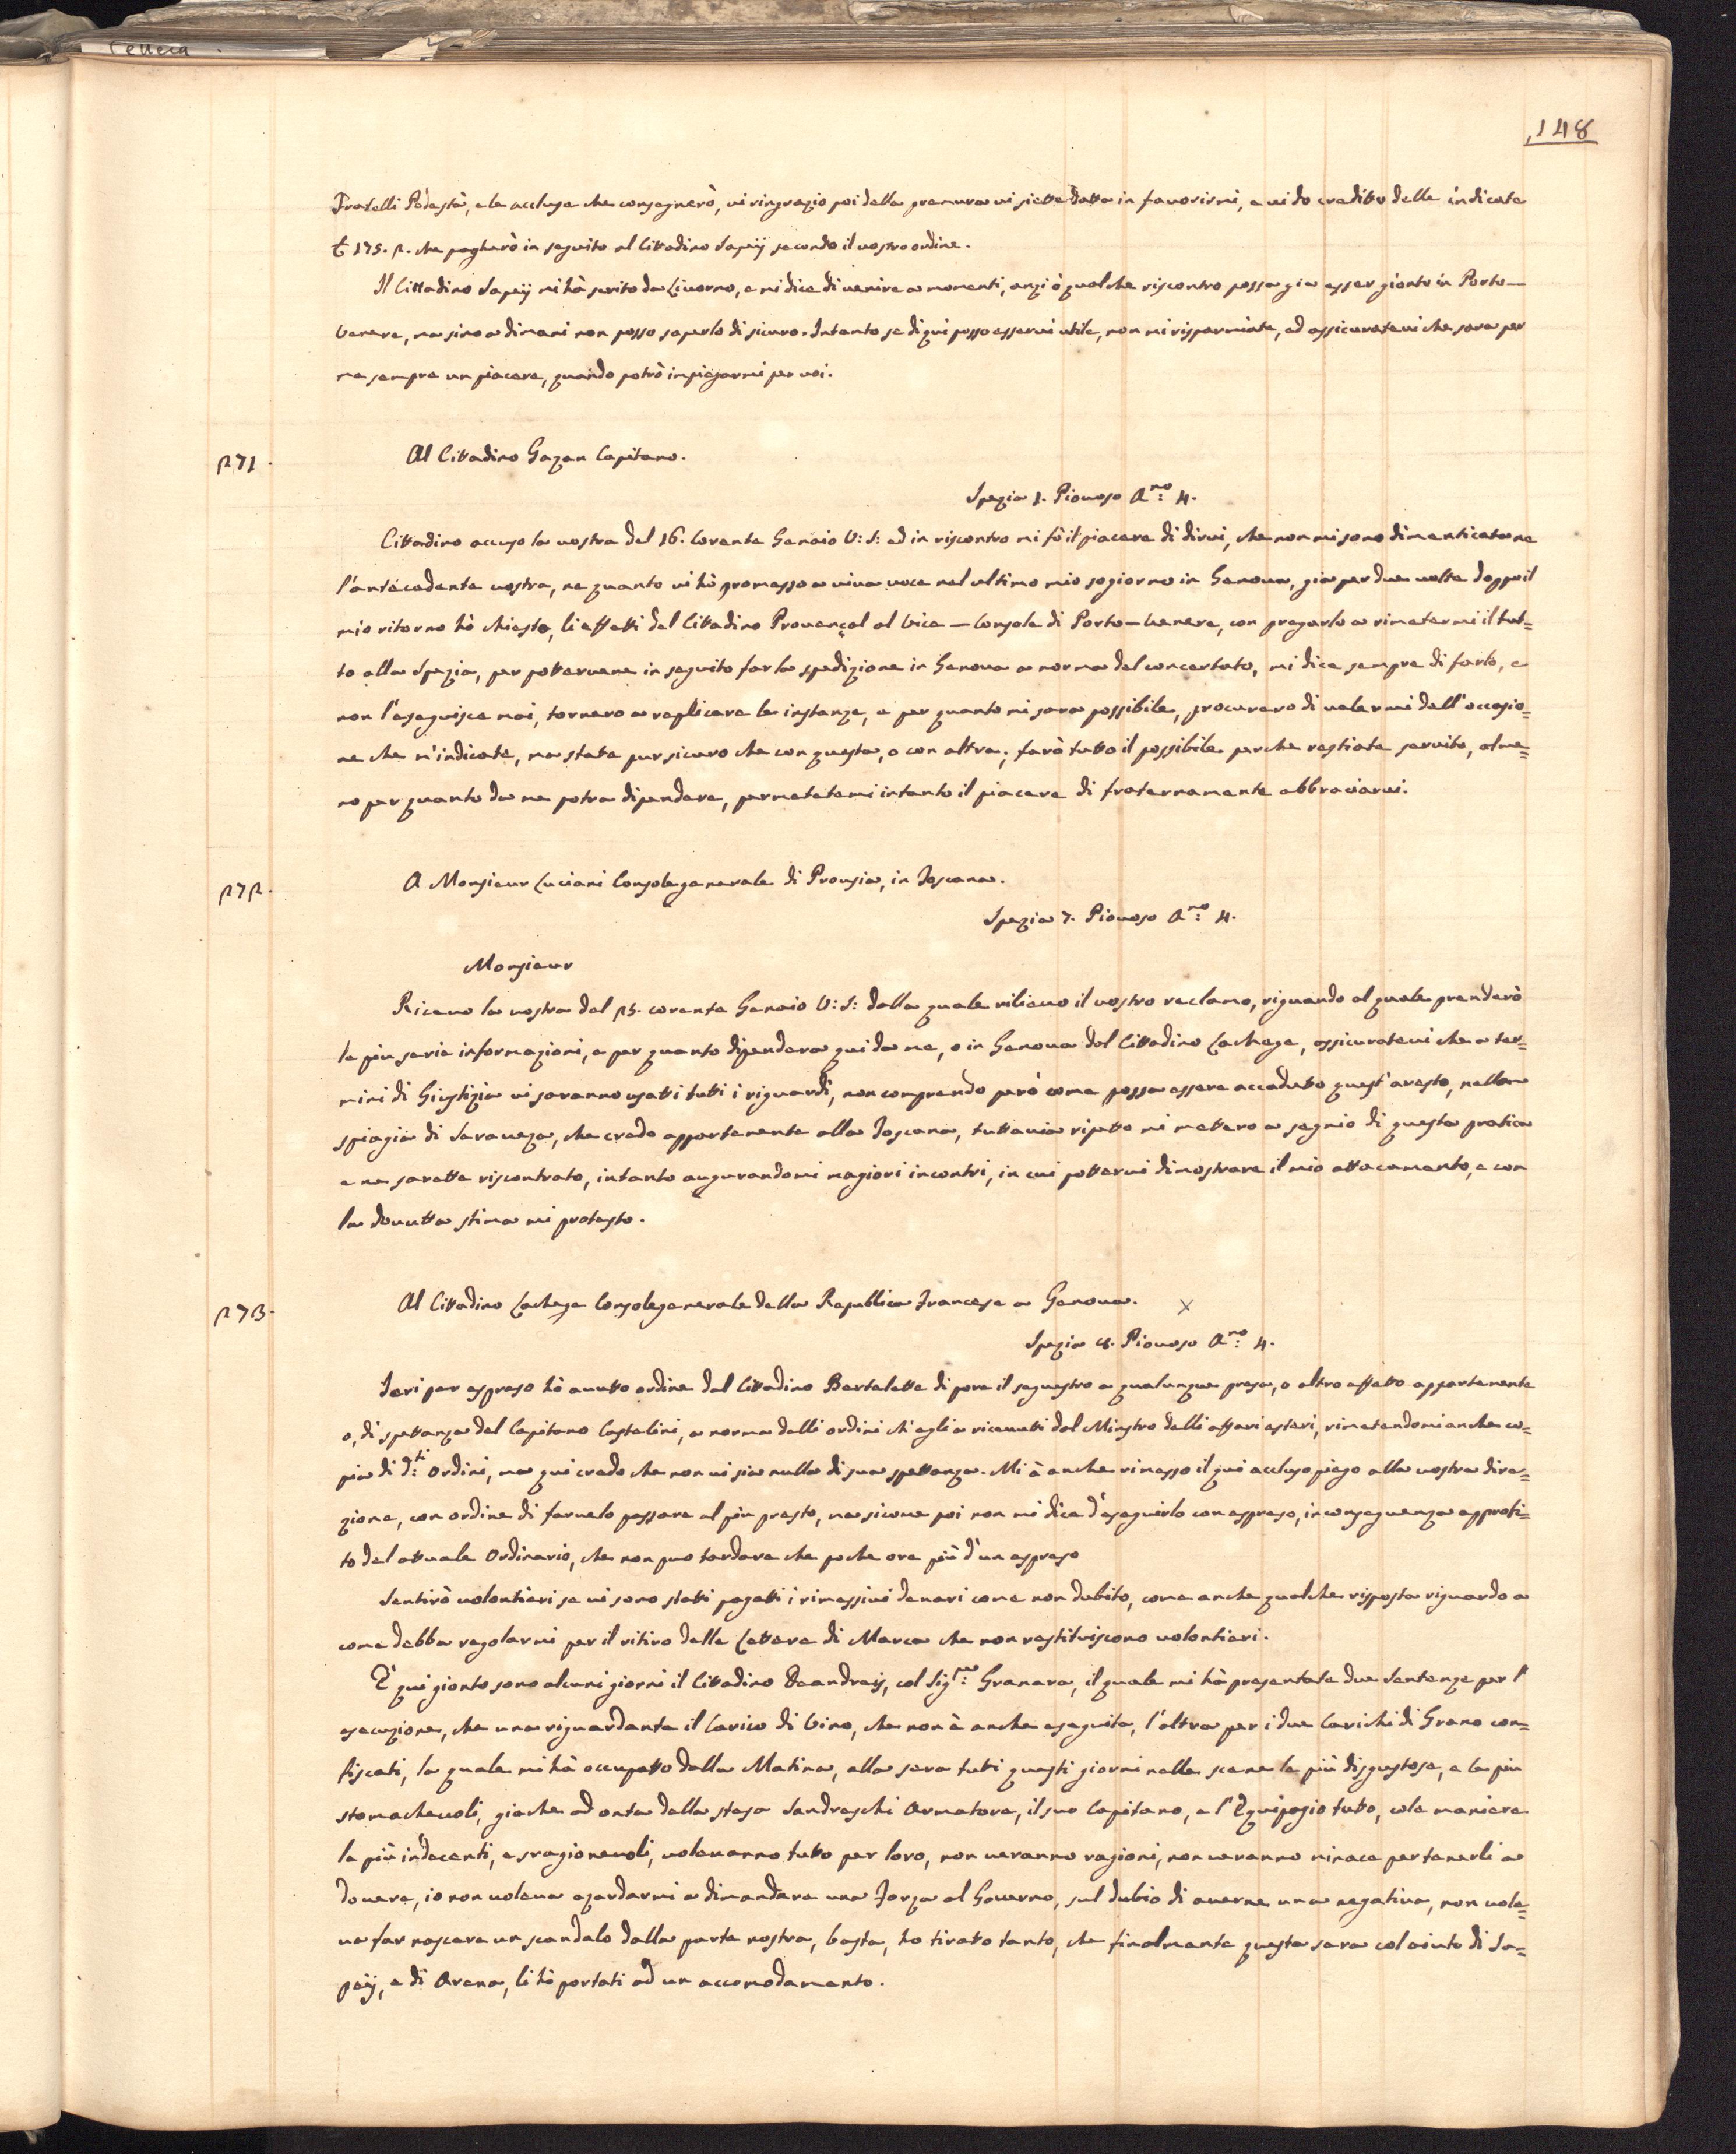 148
Fratelli Podestà, e le accluse che consegnerò, vi ringrazio poi della premura vi siette datta in favorirmi, e vi do creditto delle indicate
£ 175. 2. che pagherò in seguito al Cittadino Sapeij secondo il vostro ordine.
Il Cittadino Sapeij mi hà scrito da Livorno, e mi dice di venire a momenti, anzi ò qualche riscontro possa gia esser gionto in Porto-
venere, ma sino a dimani non posso saperlo di sicuro. Intanto se di qui posso esservi utile, non mi risparmiate, ed assicuratevi che sara per
me sempre un piacere, quando potrò impiegarmi per voi.
271. Al Cittadino Gazan Capitano.
Spezia 1. Piovoso A.no 4.
Cittadino accuso la vostra del 16. Corente Genaio V: S: ed in riscontro mi fò il piacere di dirvi, che non mi sono dimenticato ne
l'antecedente vostra, ne quanto vi hò promesso a viva voce nel ultimo mio sogiorno in Genova, gia per due volte doppo il
mio ritorno hò chiesto, li effetti del Cittadino Provençal al Vice-Console di Porto-Venere, con pregarlo a rimetermi il tut=
to alla Spezia, per pottervene in seguito far la spedizione in Genova a norma del concertato, mi dice sempre di farlo, e
non l'eseguisce mai, tornero a replicare le instanze, e per quanto mi sara possibile, procurero di valermi dell'occasio=
ne che m'indicate, ma state pur sicuro che con questa, o con altra, farò tutto il possibile perche restiate servito, alme=
no per quanto da me potra dipendere, permetetemi intanto il piacere di fraternamente abbraciarvi.
272. A Monsieur Luciani Console generale di Prousia, in Toscana.
Spezia 7. Piovoso A.no 4.
Monsieur
Ricevo la vostra del 25. corente Genaio V: S: dalla quale rilievo il vostro reclamo, riguardo al quale prenderò
le piu serie informazioni, e per quanto dipendera qui da me, o in Genova dal Cittadino Lacheze, assicuratevi che a ter=
mini di Giustizia vi saranno usatti tutti i riguardi, non comprendo però come possa essere accadutto quest'aresto, nella
spiagia di Saraveza, che credo appartenente alla Toscana, tuttavia ripetto mi mettero a segnio di questa pratica
e ne sarette riscontrato, intanto augurandomi magiori incontri, in cui pottervi dimostrare il mio attacamento, e con
la dovutta stima mi protesto.
273. Al Cittadino Lacheze Console generale della Republica Francese a Genova. X
Spezia 8. Piovoso A.no 4.
Ieri per espreso hò avutto ordine dal Cittadino Bertelette di pore il sequestro a qualunque presa, o altro effetto appartenente
o, di spettanza del Capitano Castelini, a norma delli ordini ch'egli a ricevutti dal Minstro delli affari esteri, rimetendomi anche co=
pia di d.ti ordini, ma qui credo che non vi sia nulla di sua spettanza. Mi à anche rimesso il qui accluso piego alla vostra dire=
zione, con ordine di farvelo passare al piu presto, ma sicome poi non mi dice d'eseguirlo con espreso, in conseguenza approfi=
to del attuale Ordinario, che non puo tardare che poche ore più d'un espreso
Sentirò volontieri se vi sono statti pagatti i rimessivi denari come non dubito, come anche qualche risposta riguardo a
come debba regolarmi per il ritiro delle Lettere di Marca che non restituiscono volontieri.
È qui gionto sono alcuni giorni il Cittadino Deandreij, col Sig.re Granara, il quale mi hà presentate due Sentenze per l'
esecuzione, che una riguardante il Carico di Vino, che non è anche eseguita, l'altra per i due Carichi di Grano con=
fiscati, la quale mi hà occupatto dalla Matina, alla sera tuti questi giorni nelle scene le più disgustose, e le piu
stomachevoli, gia che ad onta della stesa Sandreschi Armatore, il suo Capitano, e l'Equipagio tutto, cole maniere
le più indecenti, e sragionevoli, volevanno tutto per loro, non veranno ragioni, non veranno minace per tenerli a
dovere, io non voleva azardarmi a dimandare una Forza al Governo, sul dubio di averne una negativa, non vole=
va far nascere un scandalo dalla parte nostra, basta, ho tirato tanto, che finalmente questa sera col aiuto di Sa=
peij, e di Arena, li hò portati ad un accomodamento.